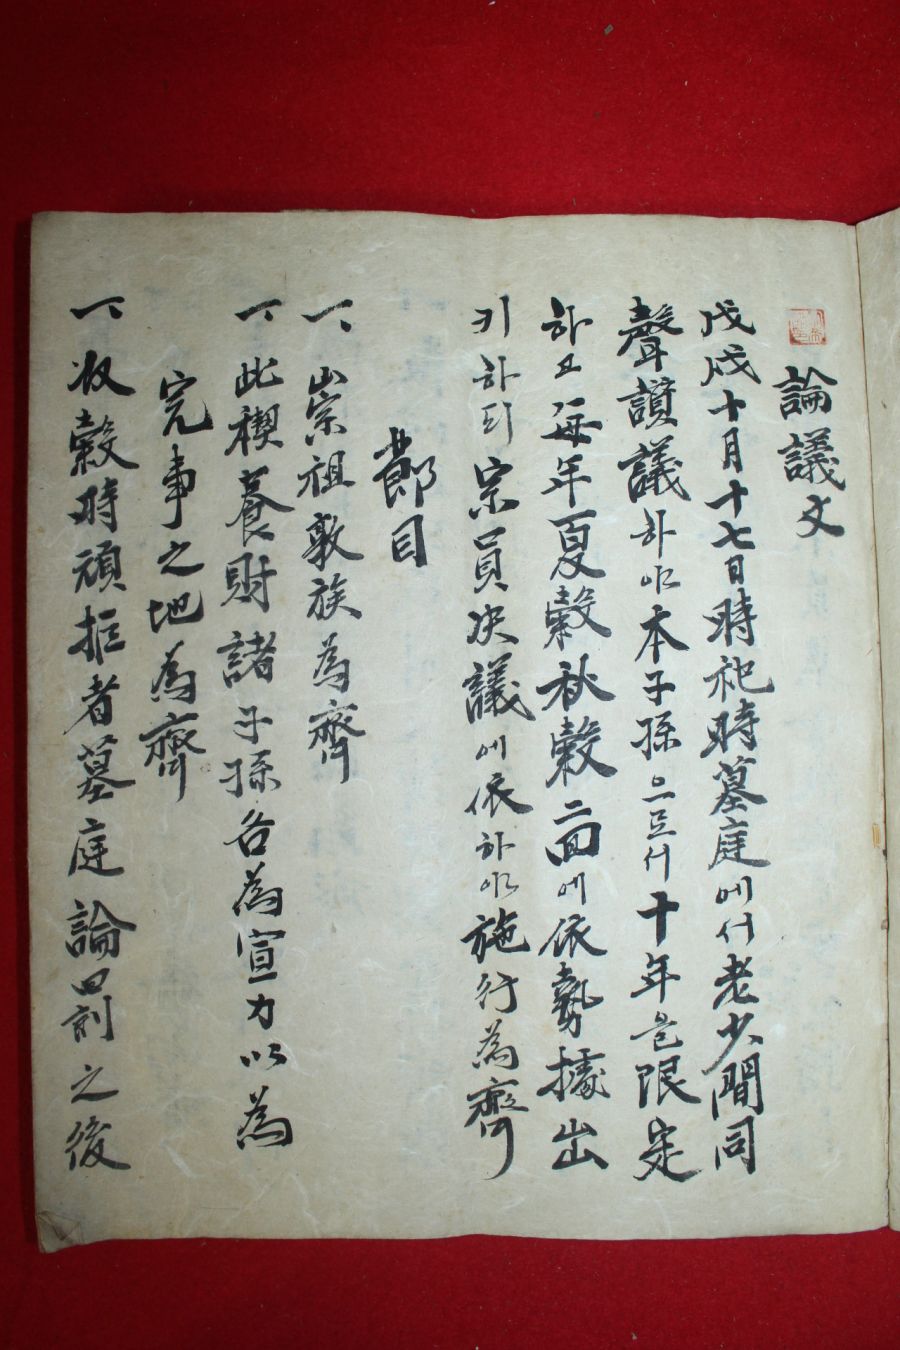 論議文
戊戌十月十七日時祀時墓庭에서老少間同
聲讃議하야本子孫으로서十年を限定
하고每年夏穀秋穀二回에依勢據出
키하되宗員决議에依하야施行為齊
節目
一、崇祖敦族為齊
一、此稧養財諸子孫各為宣力以為
完事之地為齊
一、收穀時頑拒者墓庭論罰之後